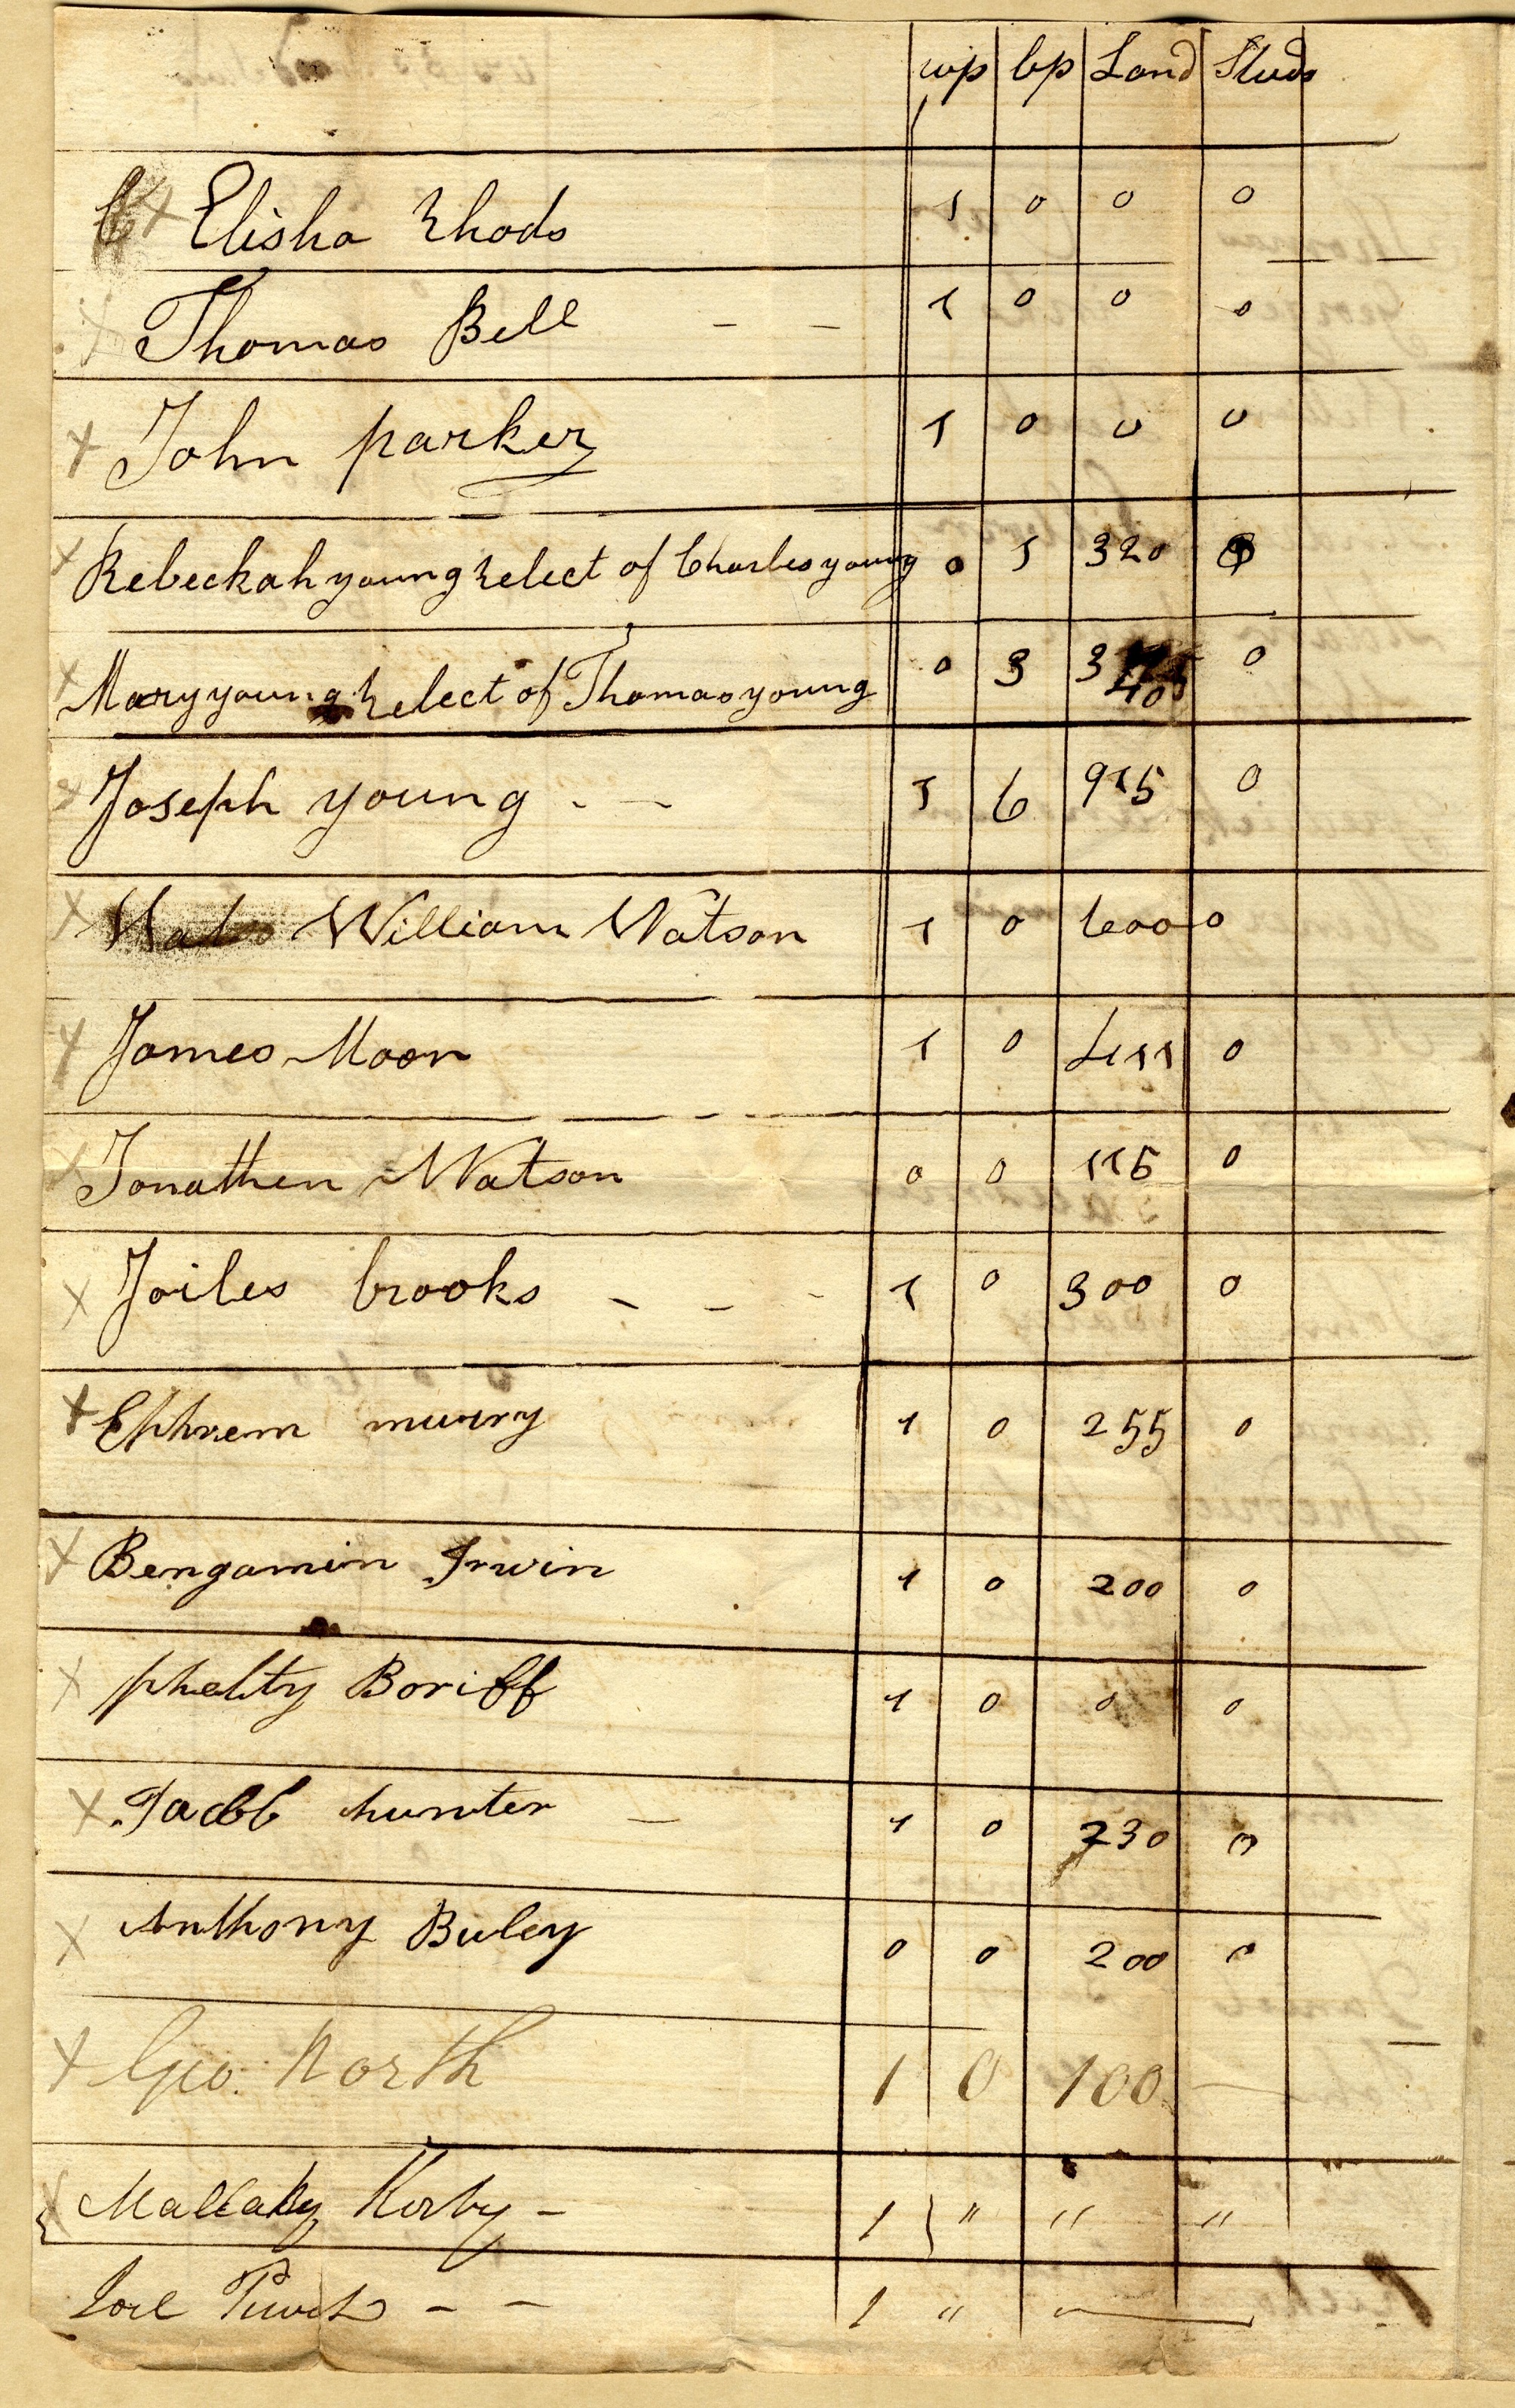 wp bp Land Studs
x Elisha Rhods 1 0 0 0
x Thomas Bell - - 1 0 0 0
x John parker 1 0 0 0
x Rebeckah young Relect of Charles young 0 1 320 0
x Mary young Relect of Thomas young 0 3 3 405 0
x Joseph young - - 1 6 915 0
x William Watson 1 0 600 0
x James Moon 1 0 411 0
x Jonathen Watson 0 0 115 0
x Joiles brooks - - - 1 0 300 0
x Ephrem murry 1 0 255 0
x Bengamin Irwin 1 0 200 0
x phelty Boriff 1 0 0 0
x Jacob hunter - 1 0 230 0
x Anthony Buley 0 0 200 0
x Geo. North 1 0 100 —
x Kerby - 1 " " "
- - 1 " —